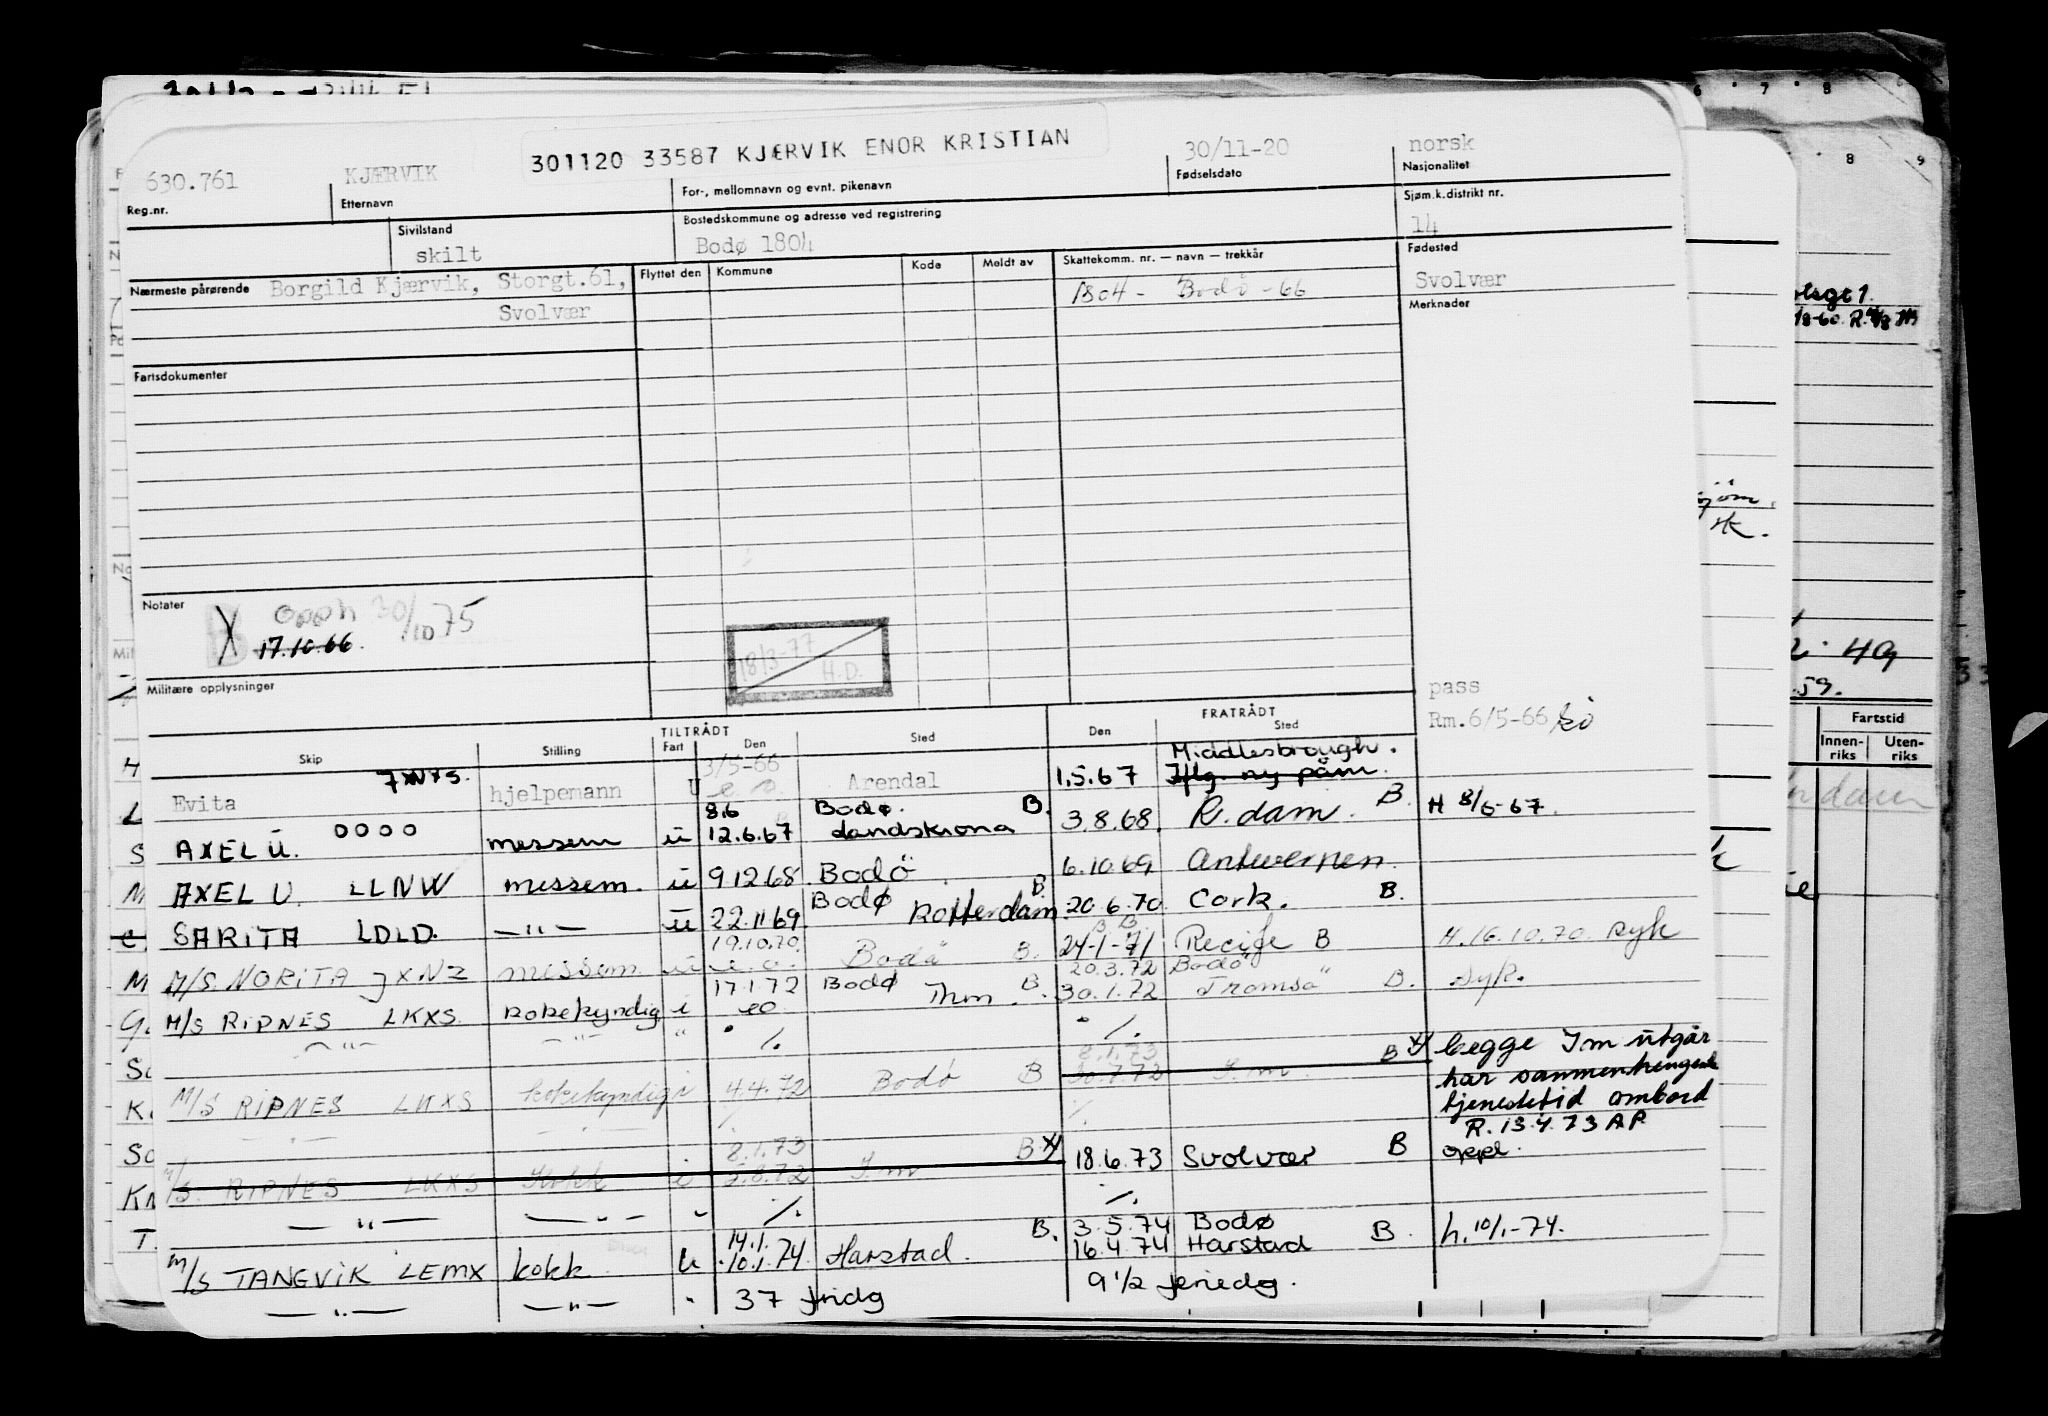 301120 33587 KJÆRVIK ENOR KRISTIAN
630.761 KJÆRVIK 30/11-20 norsk
Reg.nr. Etternavn For-, mellomnavn og evnt. pikenavn Fødselsdato Nasjonalitet
Sivilstand Bostedskommune og adresse ved registrering Sjøm.k.distrikt nr.
skilt Bodø 1804 14
Nærmeste pårørende Borgild Kjærvik, Storgt.61, Flyttet den Kommune Kode Meldt av Skattekomm. nr. — navn — trekkår Fødested
Svolvær 1804 - Bodö - 66 Svolvær
Merknader
Fartsdokumenter
Notater
X opph 30/10 75
17.10.66.
18/3-77
H.D.
Militære opplysninger
pass
Rm.6/5-66
TILTRÅDT FRATRÅDT
Skip Stilling Fart Den Sted Den Sted
Evita JXNYS. hjelpemann U 3/5-66 Arendal 1.5.67 Middlesbrough.
Iflg. ny påm.
AXEL U. 0000 messem u 8.6 12.6.67 Bodø. Landskrona B. 3.8.68. R.dam. B. H 8/6-67.
AXEL U. LLNW messem. u 9.12.68 Bodö B 6.10.69 Antwerpen.
SARITA LDLD. —"— u 22.11.69 Bodø Rotterdam 20.6.70 Cork. B.
M/S NORITA JXNZ messem. u 19.10.70. Bodö B. 24-1-71 Recife B H.16.10.70. syk
M/S RIPNES LKXS kokekyndig i 17.1.72 Bodø Thm. B. 20.3.72 30.1.72 Bodö Tromsö B. syk.
—"— —"— " ./. ./.
M/S RIPNES LKXS kokekyndig i 4.4.72 Bodö B 8.1.73 30.7.72 I.m. B x) begge Im utgår
har sammenhengende
tjenestetid ombord
R. 13.4.73 AP.
M/S RIPNES LKXS Kokk i 8.1.73 5.8.72 I.m B x) 18.6.73 Svolvær B oppl.
—"— —"— " ./. ./.
M/S TANGVIK LEMX kokk u 14.1. 10.1.74. Harstad. B. 3.5.74 16.4.74 Bodø Harstad B. h.10/1-74.
—"— —"— " 37 fridg 9 1/2 feriedg.
Fartstid
Innenriks Utenriks